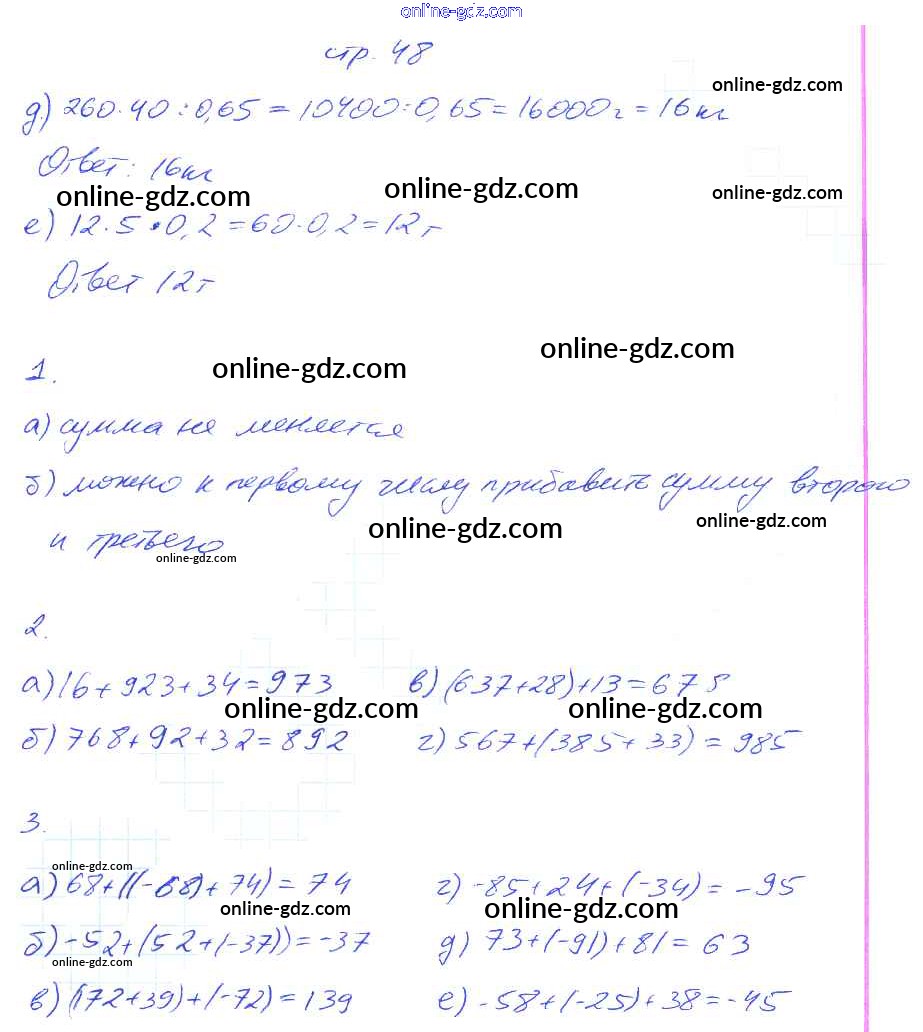 online-gdz.com
стр. 48
online-gdz.com
д) 260·40:0,65 = 10400:0,65 = 16000г = 16кг
Ответ: 16кг
online-gdz.com online-gdz.com online-gdz.com
е) 12·5·0,2 = 60·0,2 = 12г
Ответ 12г
online-gdz.com
1.
online-gdz.com
а) сумма не меняется
б) можно к первому числу прибавить сумму второго
online-gdz.com online-gdz.com
и третьего
online-gdz.com
2.
а) 16 + 923 + 34 = 973 в) (637+28)+13 = 678
online-gdz.com online-gdz.com
б) 768 + 92 + 32 = 892 г) 567+(385+33) = 985
3.
online-gdz.com
а) 68+((-68)+74) = 74 г) -85+24+(-34) = -95
online-gdz.com online-gdz.com
б) -52+(52+(-37)) = -37 д) 73+(-91)+81 = 63
online-gdz.com
в) (172+39)+(-72) = 139 е) -58+(-25)+38 = -45